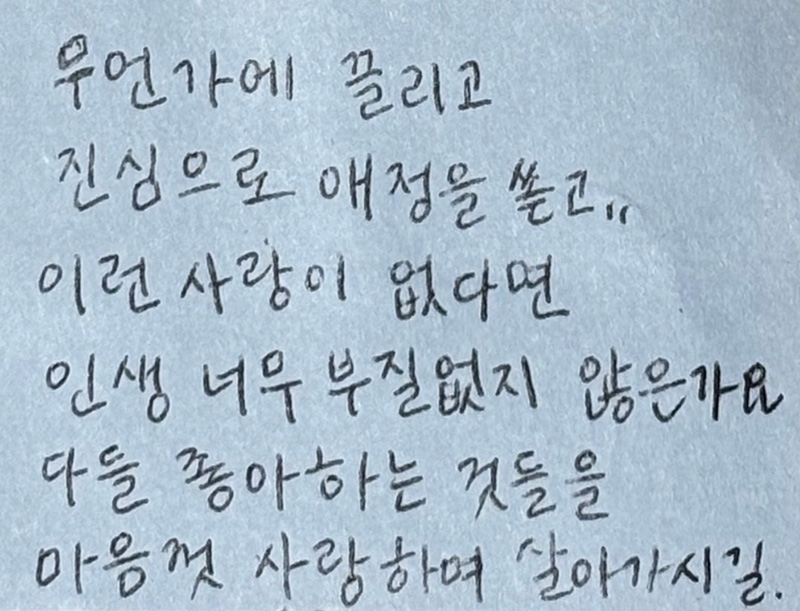 무언가에 끌리고
진심으로 애정을 쏟고,,
이런 사랑이 없다면
인생 너무 부질없지 않은가요
다들 좋아하는 것들을
마음껏 사랑하며 살아가시길.